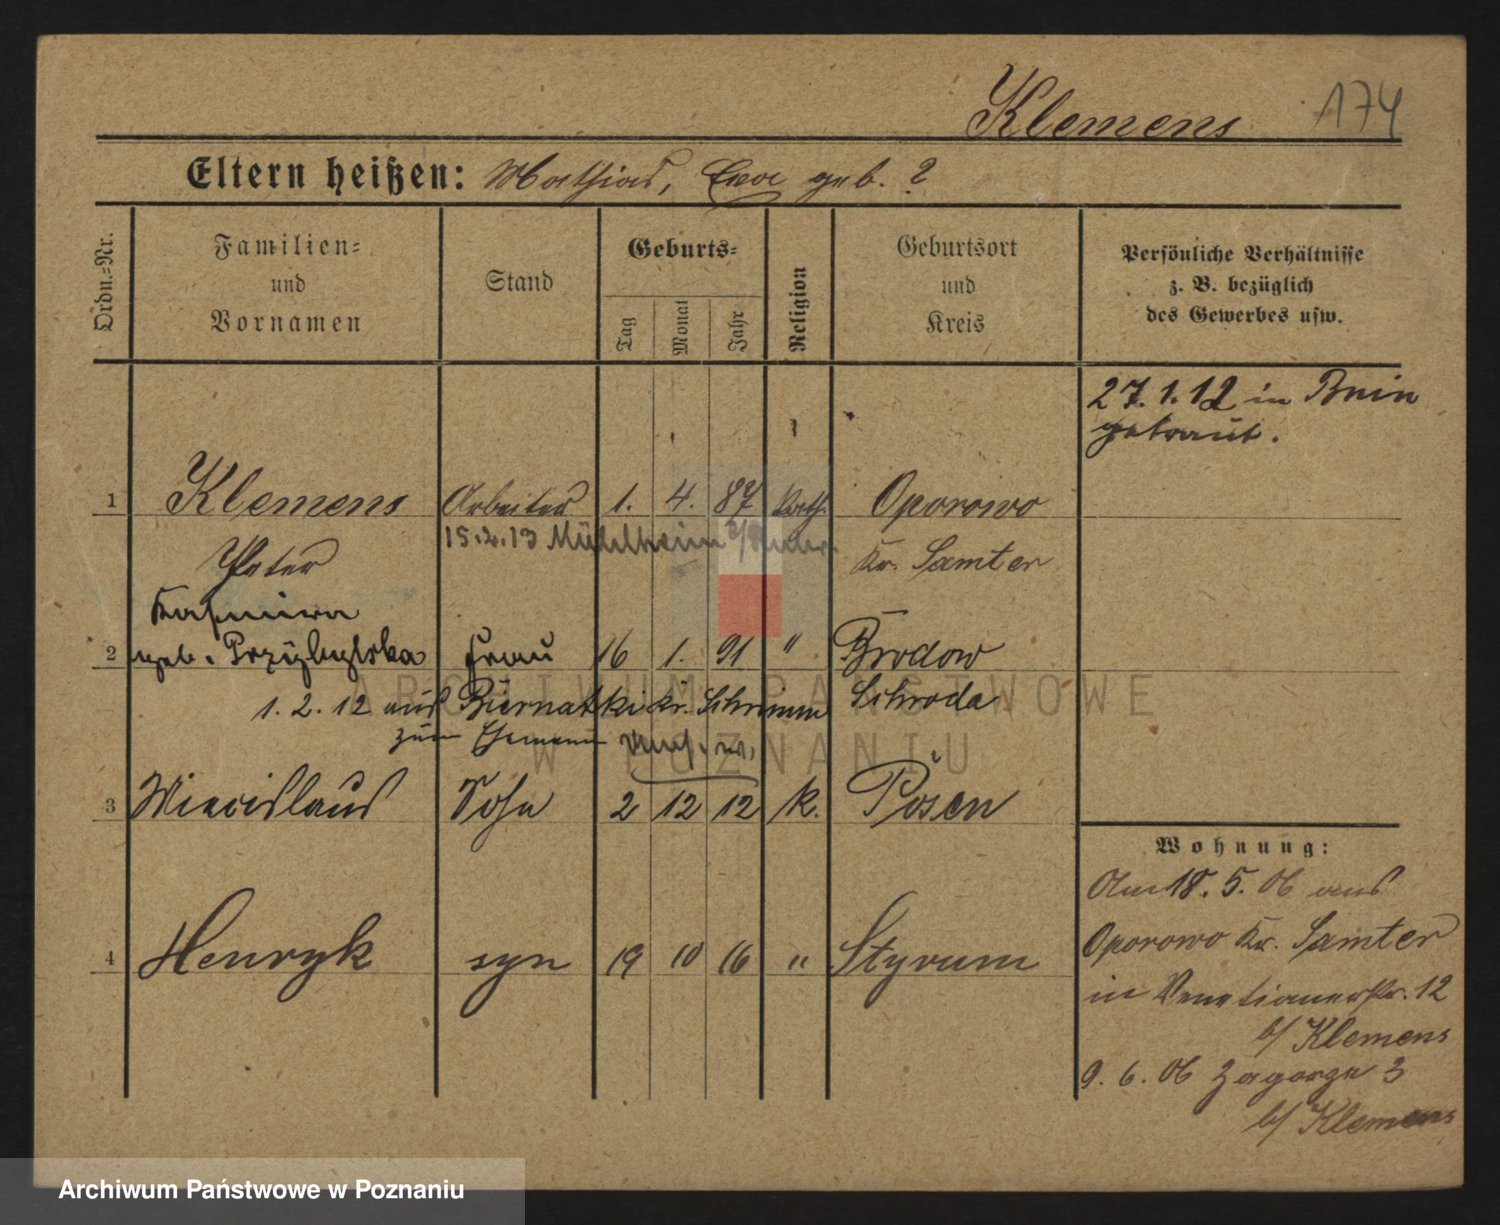 Klemens 174
Eltern heißen: Mathias, Eva geb. ?
Ordn.-Nr.
Familien- und Vornamen
Stand
Geburts-
Tag
Monat
Jahr
Religion
Geburtsort und Kreis
Persönliche Verhältnisse
z. B. bezüglich
des Gewerbes usw.
27.1.12 in Bnin
getraut.
1 Klemens Arbeiter 1. 4. 87 kath. Oporowo
15.2.13 Mühlheim a/Ruhr.
Peter Kr. Samter
Kasimira
2 geb. Frau 16 1. 91 " Brodowo
1.2.12 aus Biernatki Kr. Schrimm Schroda
zum Ehemann
3 Miecislaus Sohn 2 12 12 k. Posen
Wohnung:
Am 18.5.06 aus
4 Henryk syn 19 10 16 " Styrum
Oporowo Kr. Samter
in Venetianerstr. 12
b/ Klemens
9.6.06 Zagorze 3
b/ Klemens
ARCHIWUM PAŃSTWOWE
W POZNANIU
Archiwum Państwowe w Poznaniu